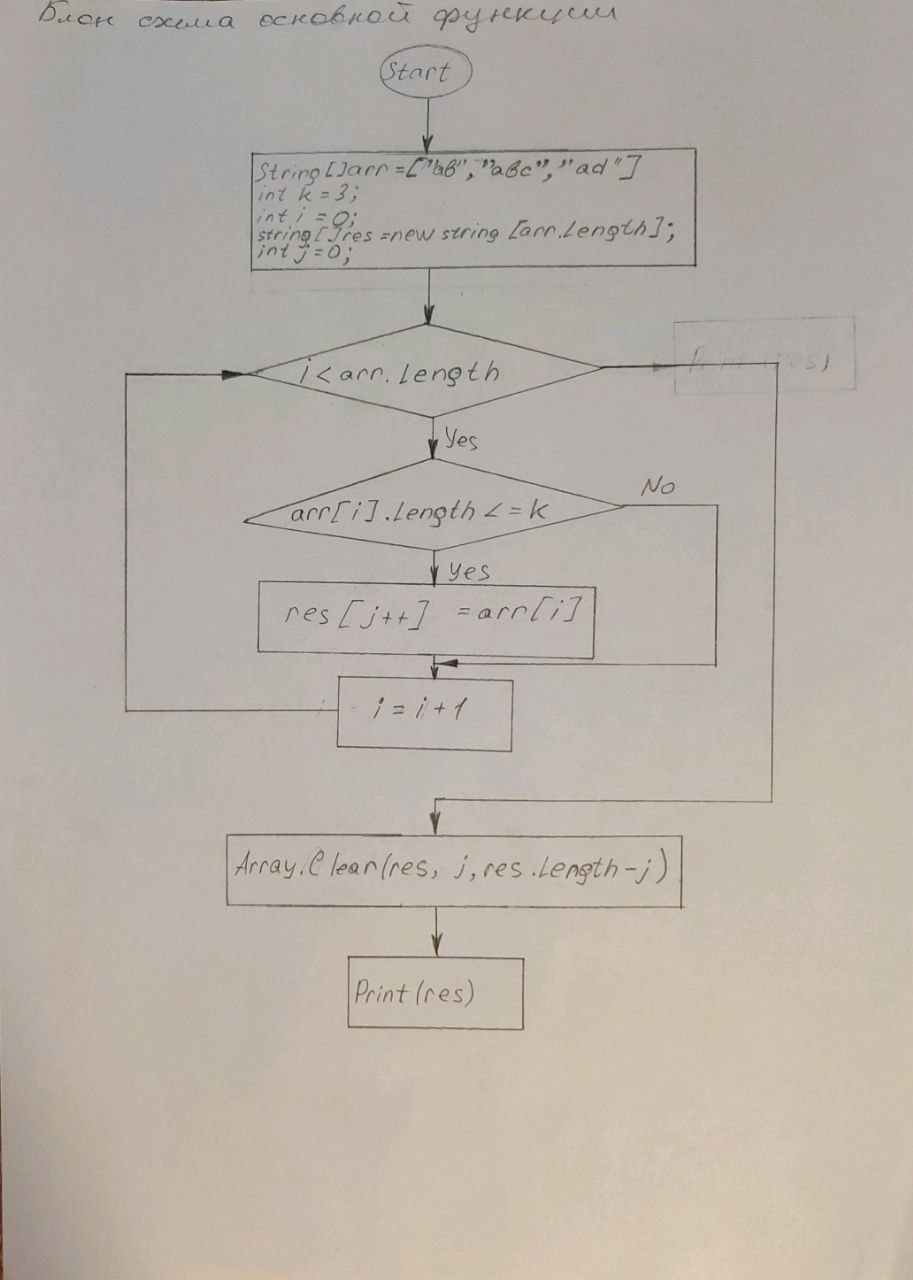 Блок схема основной функции
Start
String[]arr =["ab","abc","ad"]
int k = 3;
int i = 0;
string[]res =new string [arr.Length];
int j=0;
i < arr. Length
Print (res)
Yes
arr[i].Length <= k
No
yes
res[j++] = arr[i]
i = i + 1
Array.Clear(res, j, res.Length-j)
Print (res)